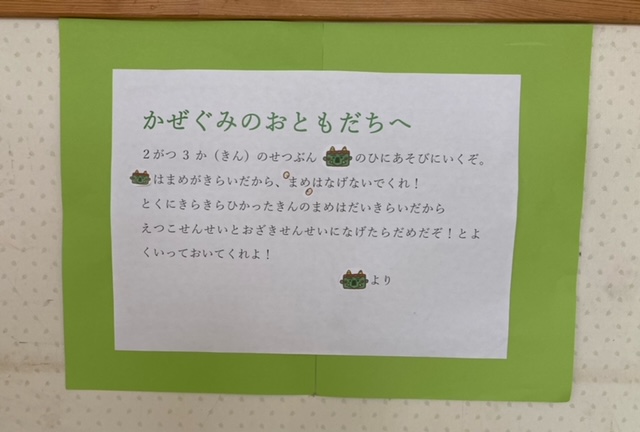 かぜぐみのおともだちへ
2がつ 3 か（きん）のせつぶん のひにあそびにいくぞ。
はまめがきらいだから、まめはなげないでくれ！
とくにきらきらひかったきんのまめはだいきらいだから
えつこせんせいとおざきせんせいになげたらだめだぞ！とよ
くいっておいてくれよ！
より